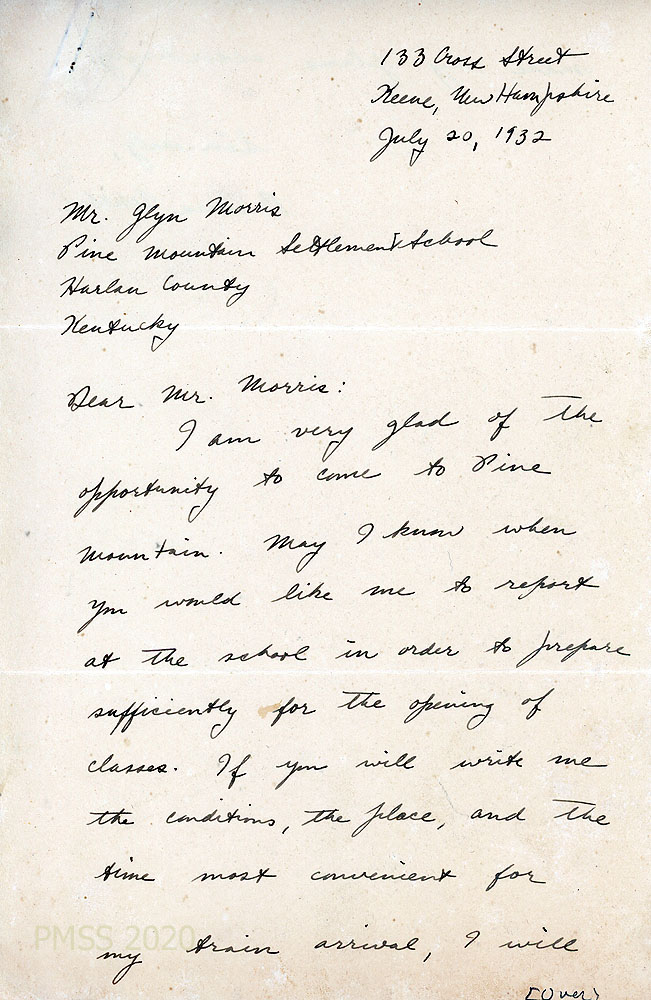 133 Cross Street
Keene, New Hampshire
July 20, 1932
Mr. Glyn Morris
Pine Mountain Settlement School
Harlan County
Kentucky
Dear Mr. Morris:
I am very glad of the
opportunity to come to Pine
Mountain. May I know when
you would like me to report
at the school in order to prepare
sufficiently for the opening of
classes. If you will write me
the conditions, the place, and the
time most convenient for
my train arrival, I will
[Over)
PMSS 2020